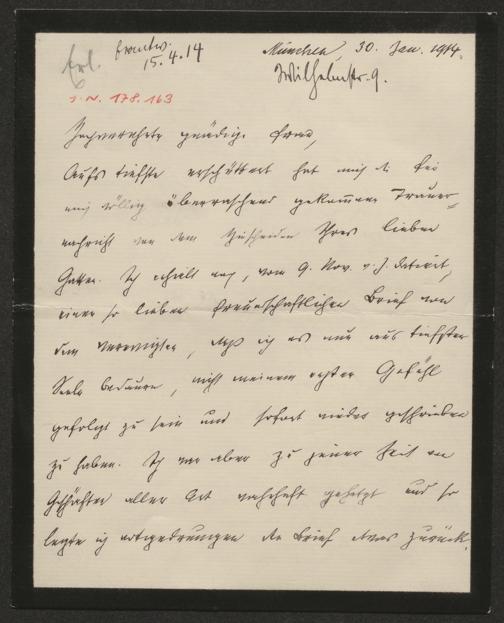 Erl.
beantw.
15.4.14
München, 30. Jan. 1914.
Wilhelmstr. 9.
I. N. 178.163
Hochverehrte gnädige Frau,
Aufs tiefste erschüttert hat mich die für
mich völlig überraschend gekommene Trauer-
nachricht von dem Hinscheiden Ihres lieben
Gatten. Ich erhielt noch, vom 9. Nov. v. J. datiert,
einen so lieben freundschaftlichen Brief von
dem Verewigten, daß ich es nur aus tiefster
Seele bedaure, nicht meinem ersten Gefühl
gefolgt zu sein und sofort wieder geschrieben
zu haben. Ich war aber zu jener Zeit von
Geschäften aller Art wahrhaft gehetzt und so
legte ich notgedrungen den Brief etwas zurück.